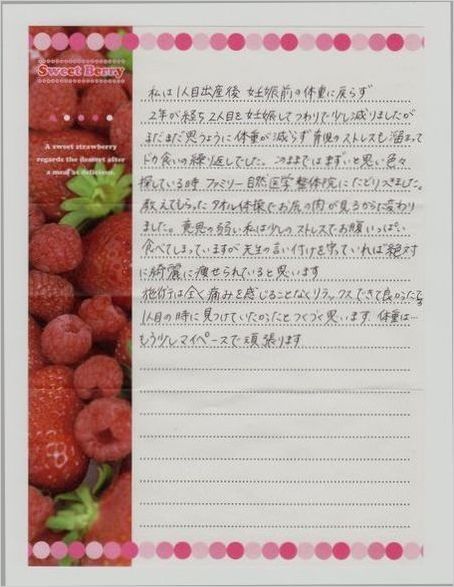 Sweet Berry
A sweet strawberry
regards the dessert after
a meal as delicious.
私は1人目出産後 妊娠前の体重に戻らず
2年が経ち2人目を妊娠してつわりで少し減りましたが
まだまだ思うように体重が減らず育児のストレスも溜まって
ドカ食いの繰り返しでした。このままではまずいと思い色々
探している時 ファミリー自然医学整体院にたどりつきました。
教えてもらったタオル体操でお尻の肉が見るからに変わり
ました。意思の弱い私は少しのストレスでお腹いっぱい
食べてしまっていますが先生の言い付けを守っていれば絶対
に綺麗に痩せられていると思います
施術は全く痛みを感じることなくリラックスできて良かったです
1人目の時に見つけていたかったとつくづく思います。体重は…
もう少しマイペースで頑張ります